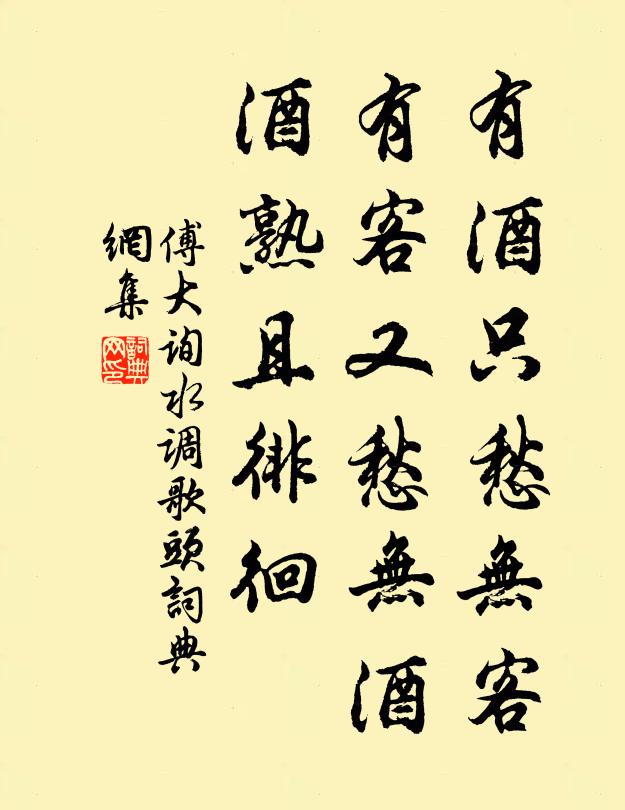 有酒只愁無客
有客又愁無酒
酒熟且徘徊
傅大询水调歌頭詞典
網集
詞典網印